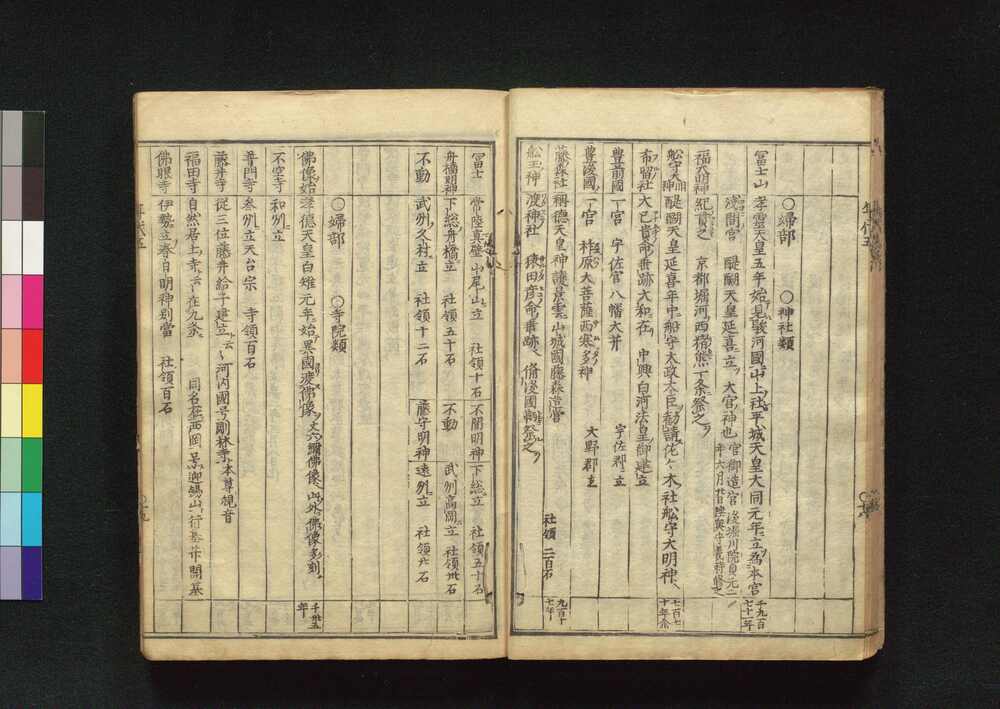 ○婦部 ○神社類
冨士山 孝霊天皇五年始見駿河國山上社平城天皇大同元年立為本宮 千九百七十一年
淺間宮 醍醐天皇延喜立 大宮神也
福大明神 紀貫之 京都堀河西猪熊下条祭之
舩守大明神 醍醐天皇延喜年中船守太政大臣勧請佗々木社舩守大明神
布留社 大己貴命垂跡大和在 中興白河法皇御建立
豊前國 一宮 宇佐宮八幡大芥 宇佐郡立
豊後國 一宮 柞原大菩薩西寒多神 大野郡立
藤森社 稱德天皇神護景雲山城國藤森造営
舩玉神 渡神社 猿田彦命垂跡 備後國 社領 二百石 九百十七年
冨士 常陸真壁山尾山立 社領十石 不開明神 下総立 社領五十石
舟橋明神 下総舟橋立 社領五十石 不動 武州高岡立 社領卅石
不動 武州今村立 社領十二石 藤守明神 遠州立 社領廾石
○婦部 ○寺院類
佛像始 孝德天皇白雉元年始異國渡佛像丈六繍佛像此外佛像多刻 千卅五年
不空寺 和州立
普門寺 叁州立天台宗 寺領百石
藤井寺 從三位藤井給子建立云々河内國号剛林寺本尊観音
福田寺 自然居士寺云在九条 同名在西岡 行基作開基
佛眼寺 伊勢立春日明神別當 社領百石
年代五